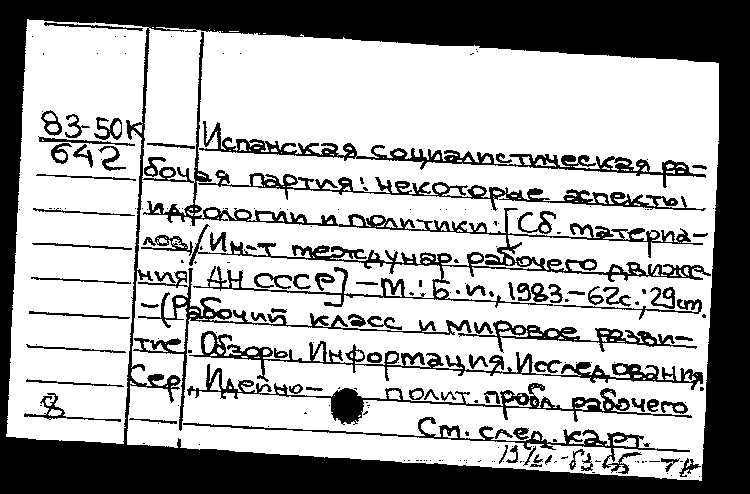 83-50К
642
Испанская социалистическая ра=
бочая партия: некоторые аспекты
идеологии и политики: [Сб. материа=
лов/Ин-т междунар. рабочего движе
ния АН СССР] -М.: Б.и., 1983.-62с.; 29см.
-(Рабочий класс и мировое разви-
тие. Обзоры. Информация. Исследования.
Сер. "Идейно- полит. пробл. рабочего
8
См. след. карт.